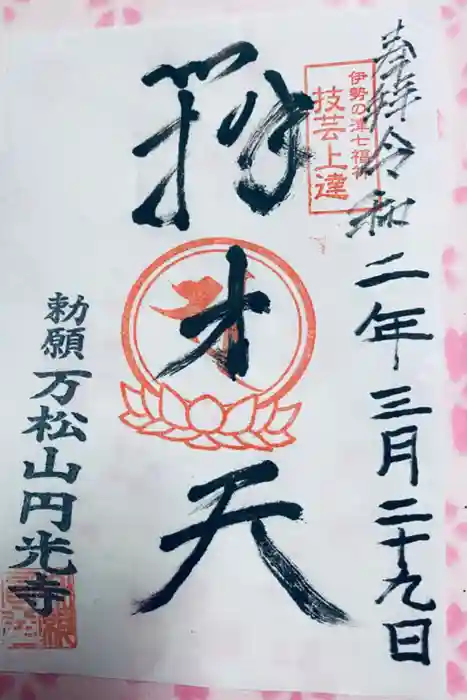 奉拝 令和二年三月二十九日
伊勢の津七福神
技芸上達
才天
勅願 万松山円光寺